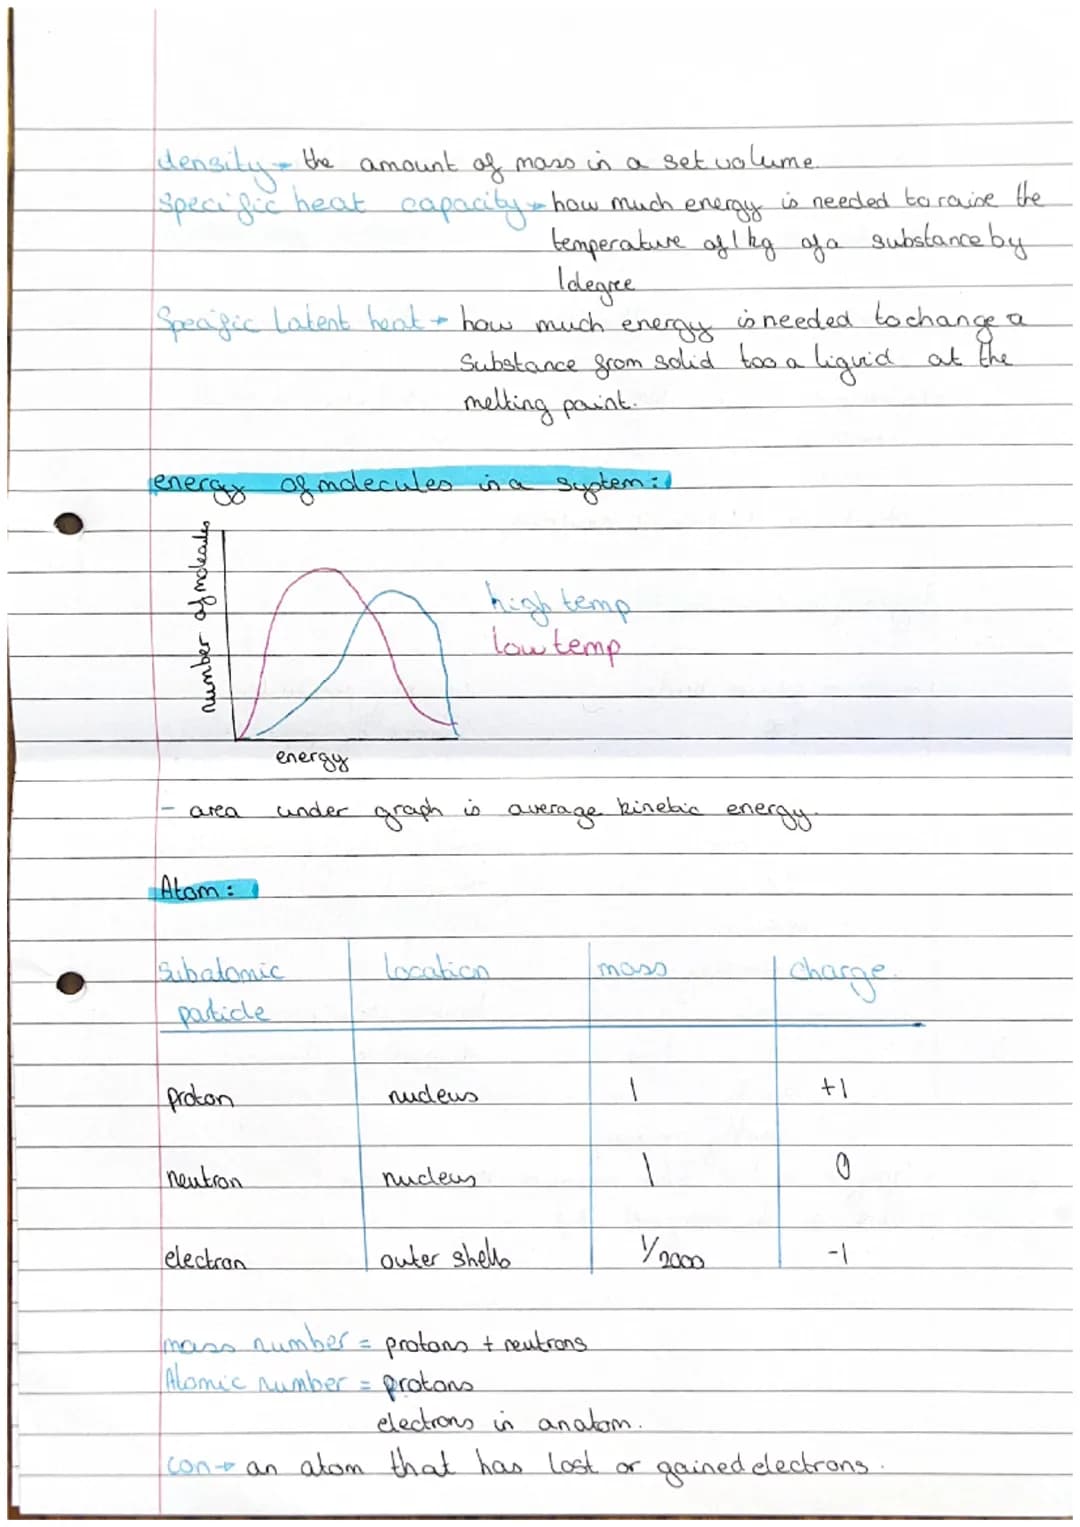 density → the amount of mass in a set volume.
specific heat capacity → how much energy is needed to raise the
temperature of 1 kg of a substance by
1 degree
Specific Latent heat → how much energy is needed to change a
Substance from solid too a liquid at the
melting point.
energy of molecules in a system:
number of molecules
high temp
low temp
energy
- area under graph is average kinetic energy.
Atom:
Subatomic location mass charge.
particle
proton nucleus 1 +1
neutron nucleus 1 0
electron outer shells 1/2000 -1
mass number = protons + neutrons
Atomic number = protons
electrons in an atom.
ion → an atom that has lost or gained electrons.